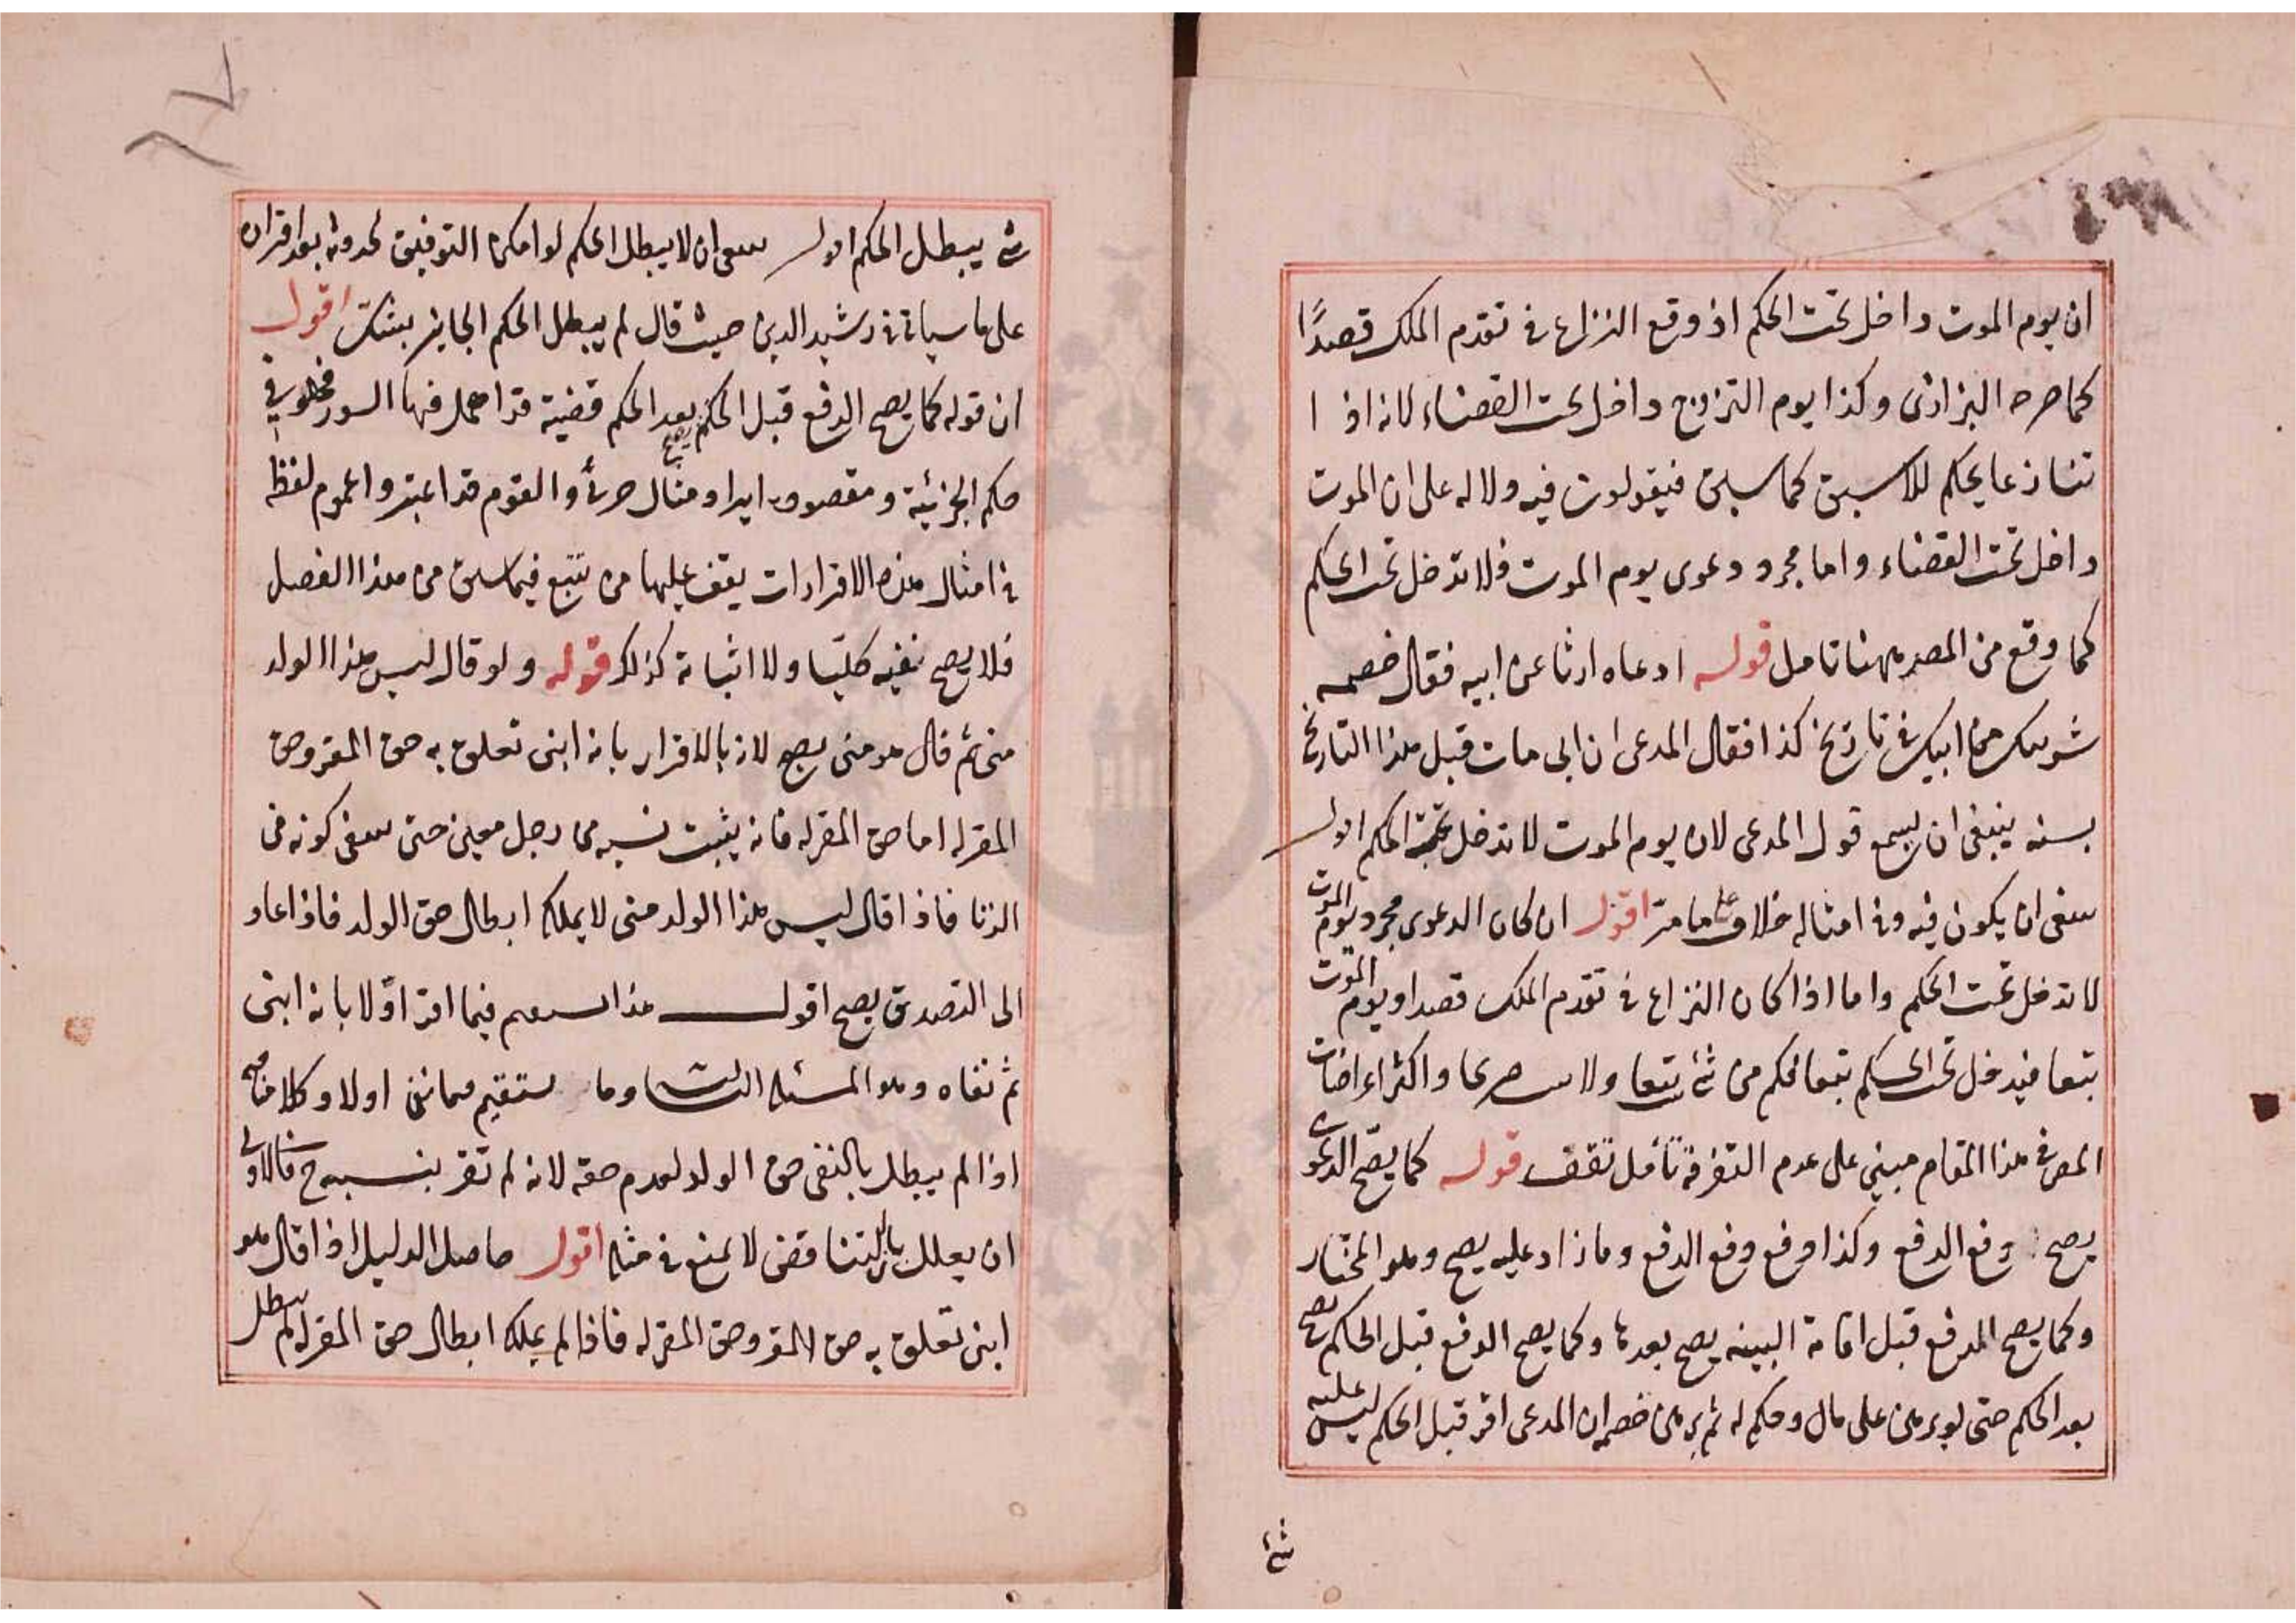 ان يوم الموت داخل تحت الحكم اذ وقع النزاع في تقدم الملك قصدًا
كما صرحه البزازى وكذا يوم التزوج داخل تحت القضاء لانه اذا
تنازعا يحكم للاسبق كما سبق فيقولون فيه دلاله على ان الموت
داخل تحت القضاء واما مجرد دعوى يوم الموت فلا تدخل تحت الحكم
كما وقع من المصر ههنا تامل قوله ادعاه ارثا عن ابيه فقال خصمه
شريتك من ابيك في تاريخ كذا فقال المدعى ان ابى مات قبل هذا التاريخ
بسنه ينبغى ان يسمع قول المدعى لان يوم الموت لا تدخل تحت الحكم اقول
ينبغى ان يكون فيه وفي امثاله خلاف على ما مر اقول ان كان الدعوى مجرد يوم الموت
لا تدخل تحت الحكم واما اذا كان النزاع في تقدم الملك قصدا ويوم الموت
تبعا فيدخل تحت الحكم تبعا فكم من شئ تبعا ولا صريحا واكثر اعراضات
المص في هذا المقام مبني على عدم التفرقة تأمل تقف قوله كما يصح الدعوى
يصح دفع الدفع وكذا دفع دفع الدفع وما زاد عليه يصح وهو المختار
وكما يصح الدفع قبل اقامة البينه يصح بعدها وكما يصح الدفع قبل الحكم يصح
بعد الحكم حتى لو برهن على مال وحكم له ثم برهن خصمه ان المدعى اقر قبل الحكم ليس عليه
شئ
شئ يبطل الحكم اقول ينبغى ان لا يبطل الحكم لو امكن التوفيق لحدوثه بعد اقراره
على ما سياتى في رشيد الدين حيث قال لم يبطل الحكم الجايز بشك اقول
ان قوله كما يصح الدفع قبل الحكم يصح بعد الحكم قضية قد اهمل فيها السور فهلو في
حكم الجزئية ومقصوده ايراد مثال جزئ والقوم قد اعتبروا عموم لفظه
في امثال هذه الاقرارات يقف عليها من تتبع فيما سبق من هذا الفصل
فلا يصح نفيه كليّا ولا اثباته كذلك قوله ولو قال ليس هذا الولد
منى ثم قال هو منى يصح لانه بالاقرار بانه ابنى تعلق به حق المقر وحق
المقر له اما حق المقر له فانه يثبت نسبه من رجل معين حتى ينفى كونه من
الزنا فاذا قال ليس هذا الولد منى لا يملك ابطال حق الولد فاذا عاد
الى التصديق يصح اقول هذا يستقيم فيما اقر اوّلا بانه ابنى
ثم نفاه وهو المسئله الثالثة وما يستقيم فيما نفى اولا وكلامنا فيه
اذا لم يبطل بالنفى حق الولد لعدم حقه لانه لم تقر بنسبه ح فالاولى
ان يعلل بان التناقض لا يمنع في مثله اقول حاصل الدليل اذا قال هو
ابنى تعلق به حق المقر وحق المقر له فاذا لم يملك ابطال حق المقر له لم يبطل